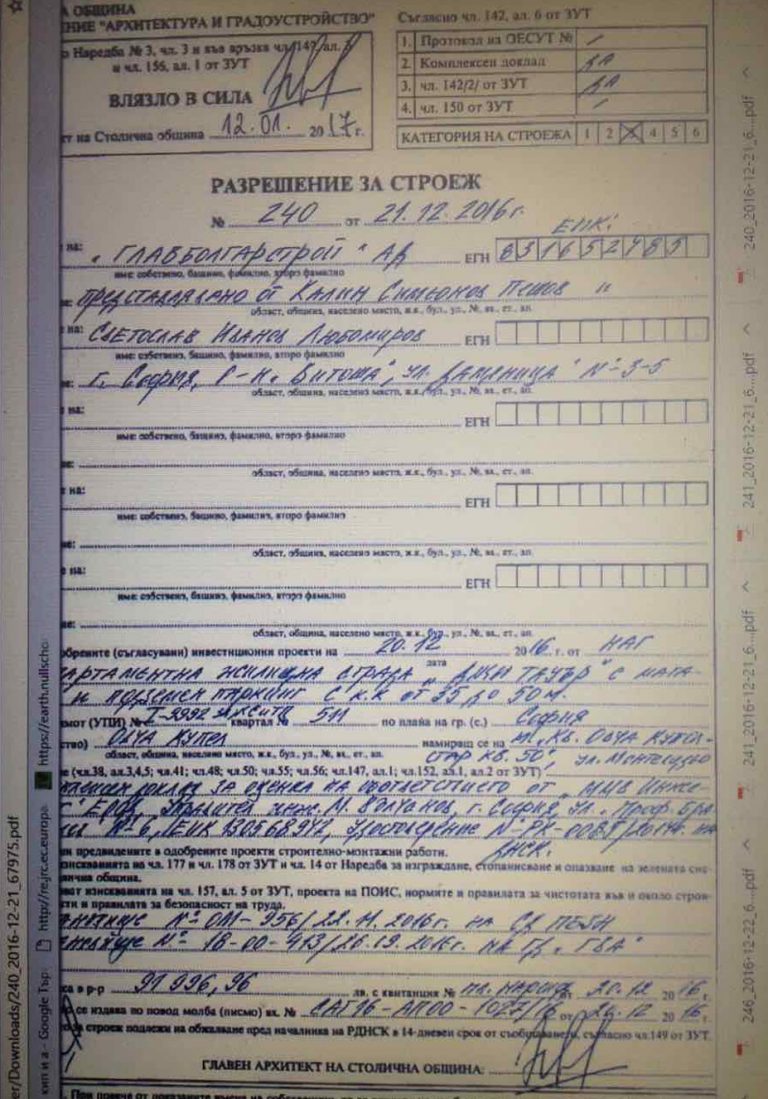 А ОБЩИНА
ЕНИЕ "АРХИТЕКТУРА И ГРАДОУСТРОЙСТВО"
о Наредба № 3, чл. 3 и във връзка чл. 149, ал.
и чл. 156, ал. 1 от ЗУТ
ВЛЯЗЛО В СИЛА
кт на Столична община 12.01. 2017 г.
Съгласно чл. 142, ал. 6 от ЗУТ
1. Протокол на ОЕСУТ № /
2. Комплексен доклад ДА
3. чл. 142/2/ от ЗУТ ДА
4. чл. 150 от ЗУТ /
КАТЕГОРИЯ НА СТРОЕЖА 1 2 3 4 5 6
РАЗРЕШЕНИЕ ЗА СТРОЕЖ
№ 240 от 21.12.2016 г.
ЕИК:
на: "ГЛАВБОЛГАРСТРОЙ" АД ЕГН 831652485
име: собствено, бащино, фамилно, второ фамилно
е: представлявано от Калин Симеонов Пешов и
област, община, населено място, ж.к., бул., ул., №, вх., ет., ап.
на: Светослав Иванов Любомиров ЕГН
име: собствено, бащино, фамилно, второ фамилно
е: г. София, р-н "Витоша", ул. Дамяница" № 3-5
област, община, населено място, ж.к., бул., ул., №, вх., ет., ап.
на: ЕГН
име: собствено, бащино, фамилно, второ фамилно
е:
област, община, населено място, ж.к., бул., ул., №, вх., ет., ап.
на: ЕГН
име: собствено, бащино, фамилно, второ фамилно
е:
област, община, населено място, ж.к., бул., ул., №, вх., ет., ап.
на: ЕГН
име: собствено, бащино, фамилно, второ фамилно
е:
област, община, населено място, ж.к., бул., ул., №, вх., ет., ап.
обрените (съгласувани) инвестиционни проекти на 20.12 2016 г. от НАГ
дата
артаментна жилищна сграда с мага-
и подземен паркинг с к.к от 35 до 50 м.
имот (УПИ) № I-9992 квартал № 511 по плана на гр. (с.) София
ство) Овча Купел намиращ се на м. "кв. Овча Купел-
област, община, населено място, ж.к., бул., ул., №, вх., ет., ап.
стар кв. 50", ул. Монтевидео
е (чл.38, ал.3,4,5; чл.41; чл.48; чл.50; чл.55; чл.56; чл.147, ал.1; чл.152, ал.1, ал.2 от ЗУТ)
доклад за оценка на съответствието от
ЕООД, Управител инж. г. София, ул. "Проф.
№ 6, ЕИК Удостоверение № РК-
ДНСК.
ни предвидените в одобрените проекти строително-монтажни работи.
изискванията на чл. 177 и чл. 178 от ЗУТ и чл. 14 от Наредба за изграждане, стопанисване и опазване на зелената сис-
лична община.
ват изискванията на чл. 157, ал. 5 от ЗУТ, проекта на ПОИС, нормите и правилата за чистотата във и около строи-
сти и правилата за безопасност на труда.
№ ОП- 956/22.11.2016 г. на СД ПБЗН
№ 18-00-413/26.09.2016 г. на ГД "ГВА"
кса в р-р 91 996,96 лв. с квитанция № от 20.12 2016 г.
се издава по повод молба (писмо) вх. № САГ16-АП00-1027/ от 20.12 2016 г.
за строеж подлежи на обжалване пред началника на РДНСК в 14-дневен срок от съобщаването, съгласно чл.149 от ЗУТ.
ГЛАВЕН АРХИТЕКТ НА СТОЛИЧНА ОБЩИНА:
er/Downloads/240_2016-12-21_67975.pdf
кип и а - Google Тър:
http://re.jrc.ec.europa.
https://earth.nullscho
240_2016-12-21_6....pdf
241_2016-12-21_6....pdf
241_2016-12-21_6....pdf
246_2016-12-22_6....pdf